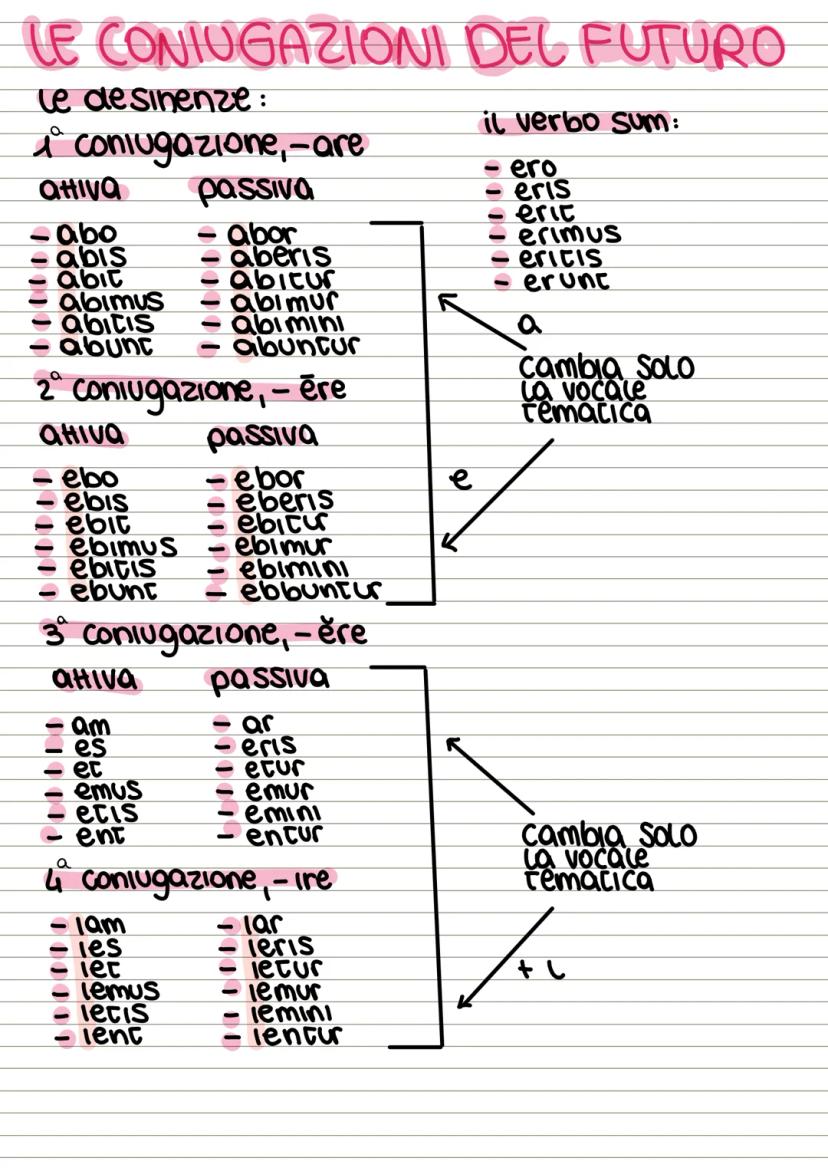 LE CONIUGAZIONI DEL FUTURO
le desinenze:
1ª coniugazione, -are
attiva passiva
- abo - abor
- abis - aberis
- abit - abitur
- abimus - abimur
- abitis - abimini
- abunt - abuntur
il verbo sum:
- ero
- eris
- erit
- erimus
- eritis
- erunt
a
cambia solo
la vocale
tematica
2ª coniugazione, - ēre
attiva passiva
- ebo - ebor
- ebis - eberis
- ebit - ebitur
- ebimus - ebimur
- ebitis - ebimini
- ebunt - ebbuntur
e
3ª coniugazione, - ĕre
attiva passiva
- am - ar
- es - eris
- et - etur
- emus - emur
- etis - emini
- ent - entur
cambia solo
la vocale
tematica
4ª coniugazione, - ire
- iam - iar
- ies - ieris
- iet - ietur
- iemus - iemur
- ietis - iemini
- ient - ientur
+ i